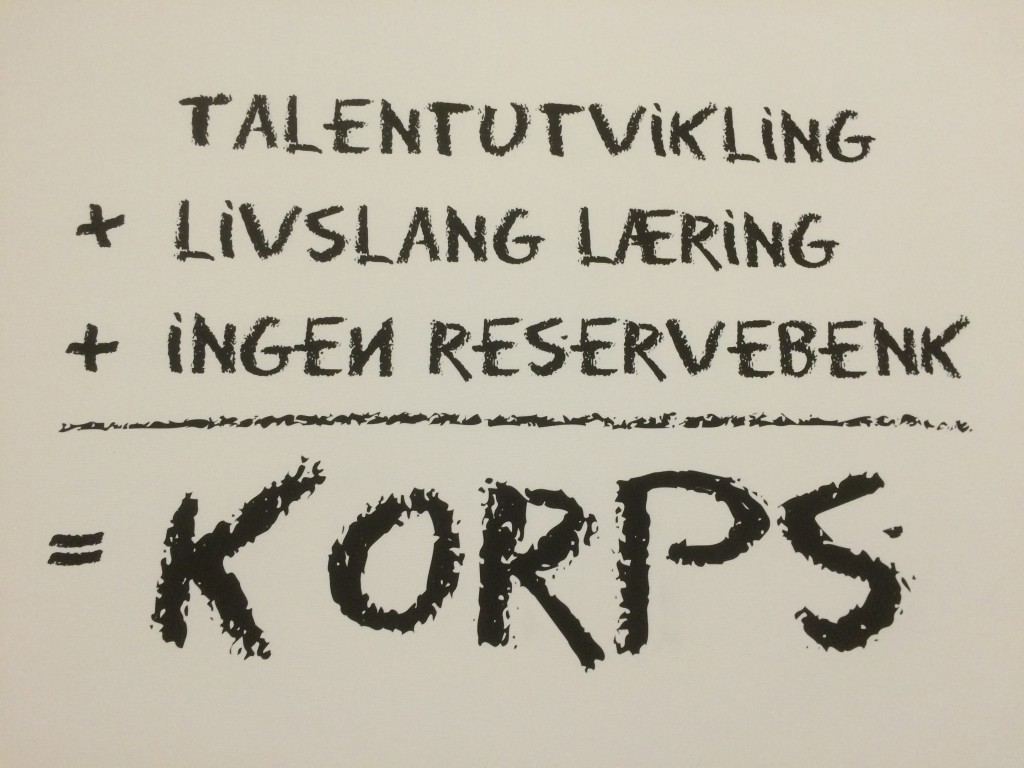 TALENTUTVIKLING
+ LIVSLANG LÆRING
+ INGEN RESERVEBENK
= KORPS